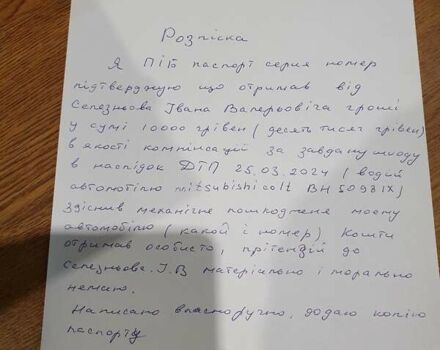 Розпіска
Я ПІБ паспорт серия номер
підтверджую що отримав від
Селезньова Івана Валерьовіча гроші
у сумі 10000 грівен (десять тисяч грівен)
в якості компінсацій за завдану шкоду
в наслідок ДТП 25.03.2024 (водий
автомотілю mitsubishi colt BH 5093 IX)
здіснив механічне пошкодженя моему
автомобілю (какой і номер) Кошти
отримав особисто, прітензій до
Селезньова. І. В матеріально і морально
немаю.
Написано власноручно, додаю копію
паспорту